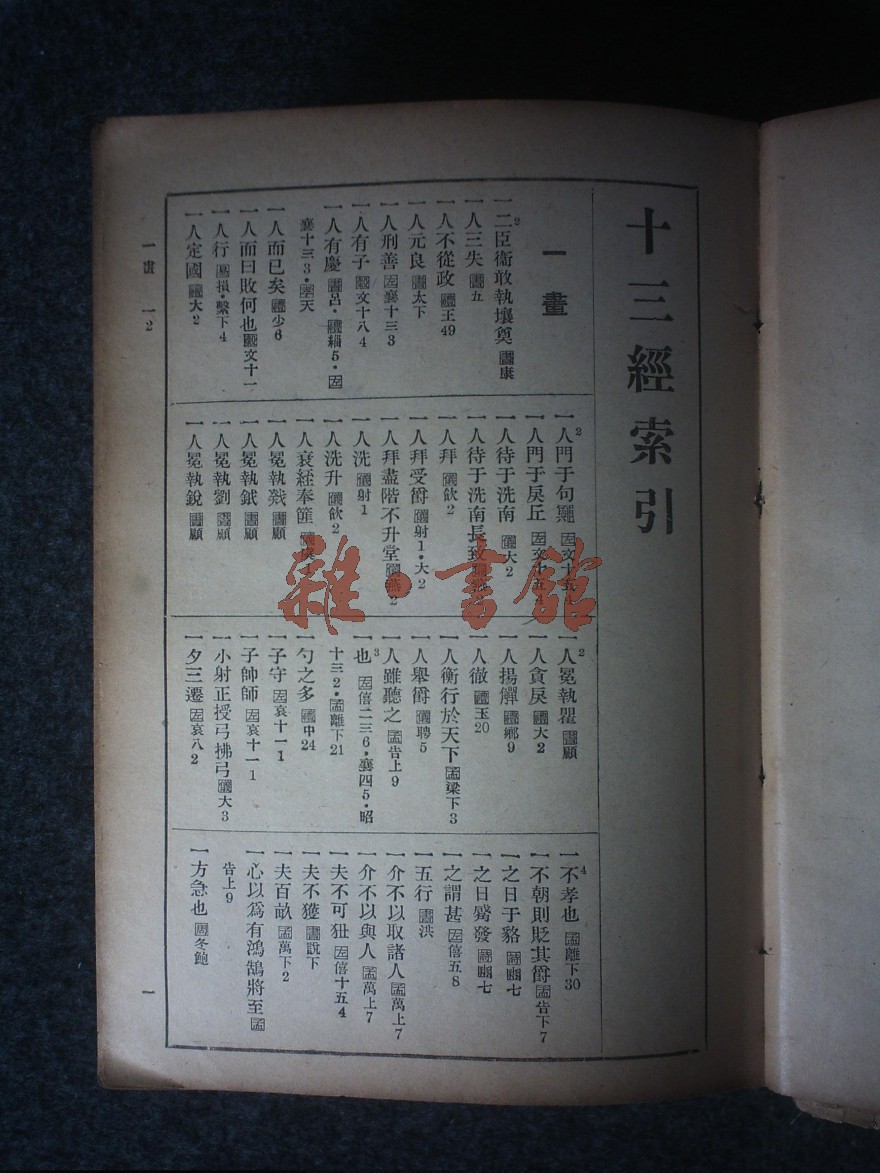 十三經索引
一畫
一²二臣衞敢執壤奠 書康
一人三失 書五
一人不從政 禮王49
一人元良 書太下
一人刑善 左襄十三3
一人有子 左文十八4
一人有慶 書呂·禮緇5·左
襄十三3·孝天
一人而已矣 禮少6
一人而曰敗何也 穀文十一
一人行 易損·繫下4
一人定國 禮大2
一²人門于句鼆 左文十五4
一人門于戾丘 左文十五4
一人待于洗南 儀大2
一人待于洗南長致
一人拜 儀飲2
一人拜受爵 儀射1·大2
一人拜盡階不升堂 儀燕2
一人洗 儀射1
一人洗升 儀飲2
一人衰絰奉篚
一人冕執戣 書顧
一人冕執鉞 書顧
一人冕執劉 書顧
一人冕執銳 書顧
一²人冕執瞿 書顧
一人貪戾 禮大2
一人揚觶 禮鄉9
一人徹 禮玉20
一人衡行於天下 孟梁下3
一人舉爵 儀聘5
一人雖聽之 孟告上9
一³也 左僖二三6·襄四5·昭
十三2·孟離下21
一勺之多 禮中24
一子守 左哀十一1
一子帥師 左哀十一1
一小射正授弓拂弓 儀大3
一夕三遷 左哀八2
一⁴不孝也 孟離下30
一不朝則貶其爵 孟告下7
一之日于貉 詩豳七
一之日觱發 詩豳七
一之謂甚 左僖五8
一五行 書洪
一介不以取諸人 孟萬上7
一介不以與人 孟萬上7
一夫不可狃 左僖十五4
一夫不獲 書說下
一夫百畝 孟萬下2
一心以爲有鴻鵠將至 孟
告上9
一方急也 周冬鮑
一畫 一2
一
雜·書館